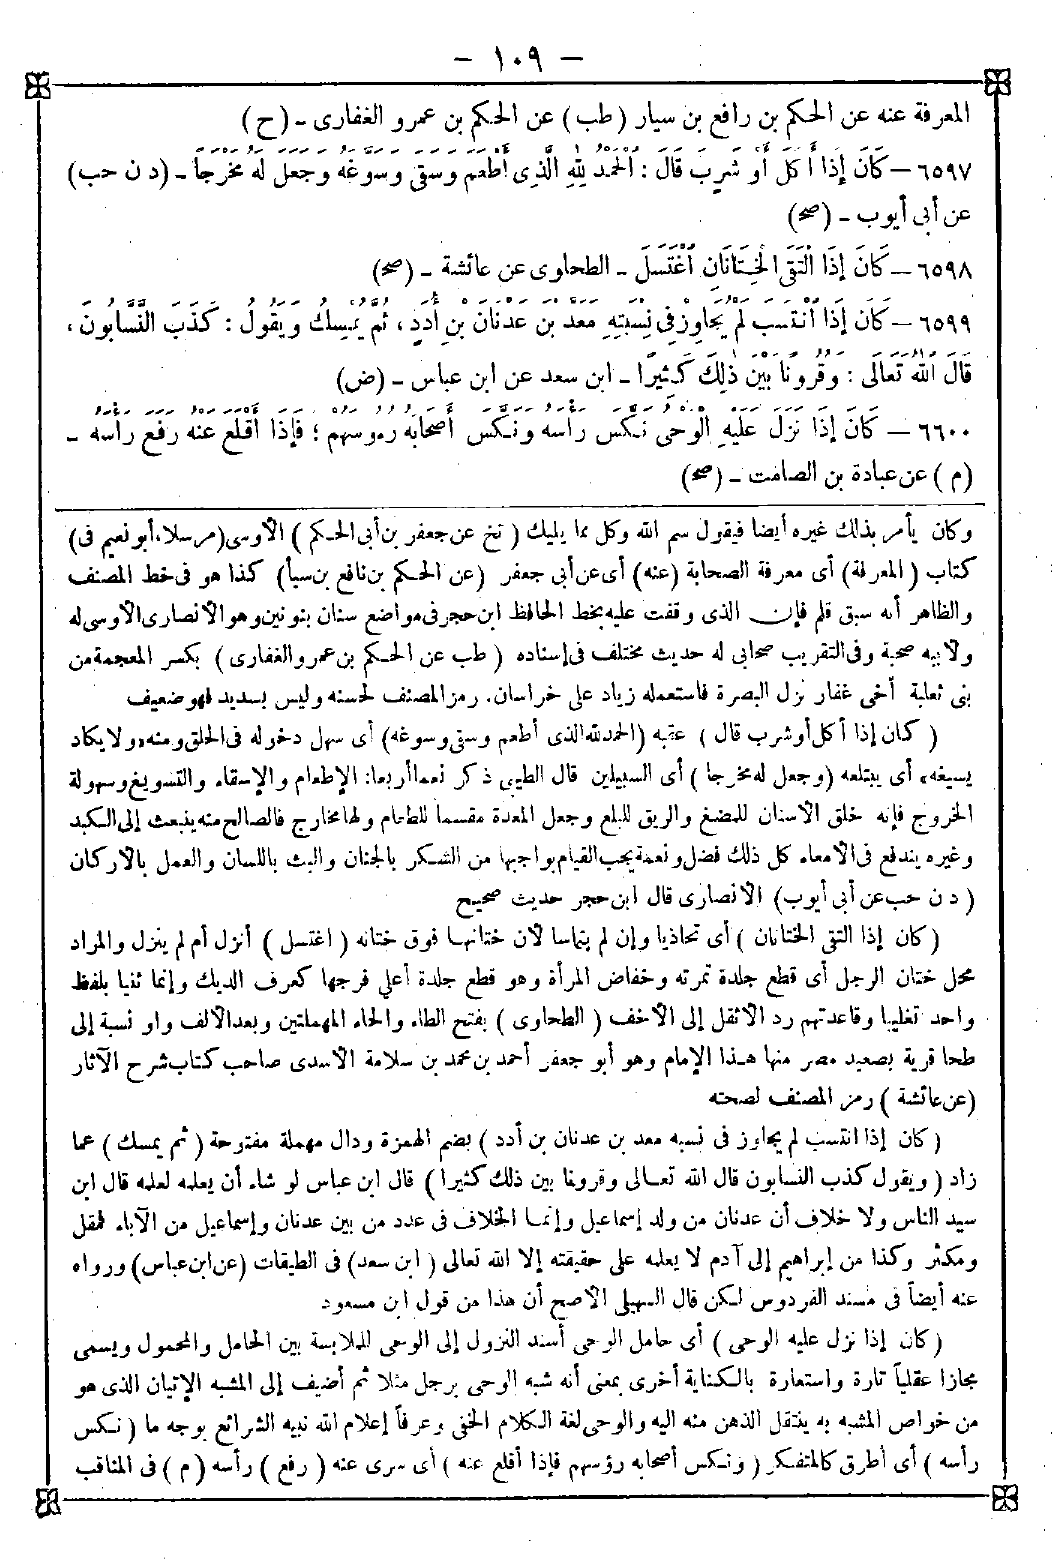 - ١٠٩ -
المعرفة عنه عن الحكم بن رافع بن سيار (طب) عن الحكم بن عمرو الغفارى - (ح)
٦٥٩٧ - كَانَ إِذَا أَكَلَ أَوْ شَرِبَ قَالَ : الْحَمْدُ لِلهِ الَّذِى أَطْعَمَ وَسَقَى وَسَوَّغَهُ وَجَعَلَ لَهُ مَخْرَجًا - (د ن حب)
عن أبى أيوب - (صح)
٦٥٩٨ - كَانَ إِذَا الْتَقَى الْخِتَانَانِ اغْتَسَلَ - الطحاوى عن عائشة - (صح)
٦٥٩٩ - كَانَ إِذَا انْتَسَبَ لَمْ يُجَاوِزْ فِى نِسْبَتِهِ مَعَدَّ بْنَ عَدْنَانَ بْنِ أُدَدٍ ، ثُمَّ يُمْسِكُ وَيَقُولُ : كَذَبَ النَّسَّابُونَ ،
قَالَ اللهُ تَعَالَى : وَقُرُونًا بَيْنَ ذٰلِكَ كَثِيرًا - ابن سعد عن ابن عباس - (ض)
٦٦٠٠ - كَانَ إِذَا نَزَلَ عَلَيْهِ الْوَحْىُ نَكَسَ رَأْسَهُ وَنَكَسَ أَصْحَابُهُ رُءُوسَهُمْ ؛ فَإِذَا أَقْلَعَ عَنْهُ رَفَعَ رَأْسَهُ -
(م) عن عبادة بن الصامت - (صح)
وكان يأمر بذلك غيره أيضا فيقول سم الله وكل مما يليك (تخ عن جعفر بن أبى الحكم) الأوسى (مرسلا، أبو نعيم فى)
كتاب (المعرفة) أى معرفة الصحابة (عنه) أى عن أبى جعفر (عن الحكم بن نافع بن سبأ) كذا هو فى خط المصنف
والظاهر أنه سبق قلم فإن الذى وقفت عليه بخط الحافظ ابن حجر فى مواضع سنان بنونين وهو الأنصارى الأوسى له
ولأبيه صحبة وفى التقريب صحابى له حديث مختلف فى إسناده (طب عن الحكم بن عمرو الغفارى) بكسر المعجمة من
بنى ثعلبة أخى غفار نزل البصرة فاستعمله زياد على خراسان. رمز المصنف لحسنه وليس بسديد فهو ضعيف
(كان إذا أكل أو شرب قال) عقبه (الحمد لله الذى أطعم وسقى وسوغه) أى سهل دخوله فى الحلق ومنه «ولا يكاد
يسيغه» أى يبتلعه (وجعل له مخرجا) أى السبيلين قال الطيبى ذكر نعما أربعا: الإطعام والإسقاء والتسويغ وسهولة
الخروج فإنه خلق الأسنان للمضغ والريق للبلع وجعل المعدة مقسما للطعام ولها مخارج فالصالح منه ينبعث إلى الكبد
وغيره يندفع فى الأمعاء كل ذلك فضل ونعمة يجب القيام بواجبها من الشكر بالجنان والبث باللسان والعمل بالأركان
(د ن حب عن أبى أيوب) الأنصارى قال ابن حجر حديث صحيح
(كان إذا التقى الختانان) أى تحاذيا وإن لم يتماسا لأن ختانها فوق ختانه (اغتسل) أنزل أم لم ينزل والمراد
محل ختان الرجل أى قطع جلدة تمرته وخفاض المرأة وهو قطع جلدة أعلى فرجها كعرف الديك وإنما ثنيا بلفظ
واحد تغليبا وقاعدتهم رد الأثقل إلى الأخف (الطحاوى) بفتح الطاء والحاء المهملتين وبعد الألف واو نسبة إلى
طحا قرية بصعيد مصر منها هذا الإمام وهو أبو جعفر أحمد بن محمد بن سلامة الأسدى صاحب كتاب شرح الآثار
(عن عائشة) رمز المصنف لصحته
(كان إذا انتسب لم يجاوز فى نسبه معد بن عدنان بن أدد) بضم الهمزة ودال مهملة مفتوحة (ثم يمسك) عما
زاد (ويقول كذب النسابون قال الله تعالى وقرونا بين ذلك كثيرا) قال ابن عباس لو شاء أن يعلمه لعلمه قال ابن
سيد الناس ولا خلاف أن عدنان من ولد إسماعيل وإنما الخلاف فى عدد من بين عدنان وإسماعيل من الآباء فمقل
ومكثر وكذا من إبراهيم إلى آدم لا يعلمه على حقيقته إلا الله تعالى (ابن سعد) فى الطبقات (عن ابن عباس) ورواه
عنه أيضاً فى مسند الفردوس لكن قال السهيلى الأصح أن هذا من قول ابن مسعود
(كان إذا نزل عليه الوحى) أى حامل الوحى أسند النزول إلى الوحى للملابسة بين الحامل والمحمول ويسمى
مجازا عقلياً تارة واستعارة بالكناية أخرى بمعنى أنه شبه الوحى برجل مثلا ثم أضيف إلى المشبه الإتيان الذى هو
من خواص المشبه به ينتقل الذهن منه اليه والوحى لغة الكلام الخفى وعرفاً إعلام الله نبيه الشرائع بوجه ما (نكس
رأسه) أى أطرق كالمتفكر (ونكس أصحابه رؤسهم فإذا أقلع عنه) أى سرى عنه (رفع) رأسه (م) فى المناقب